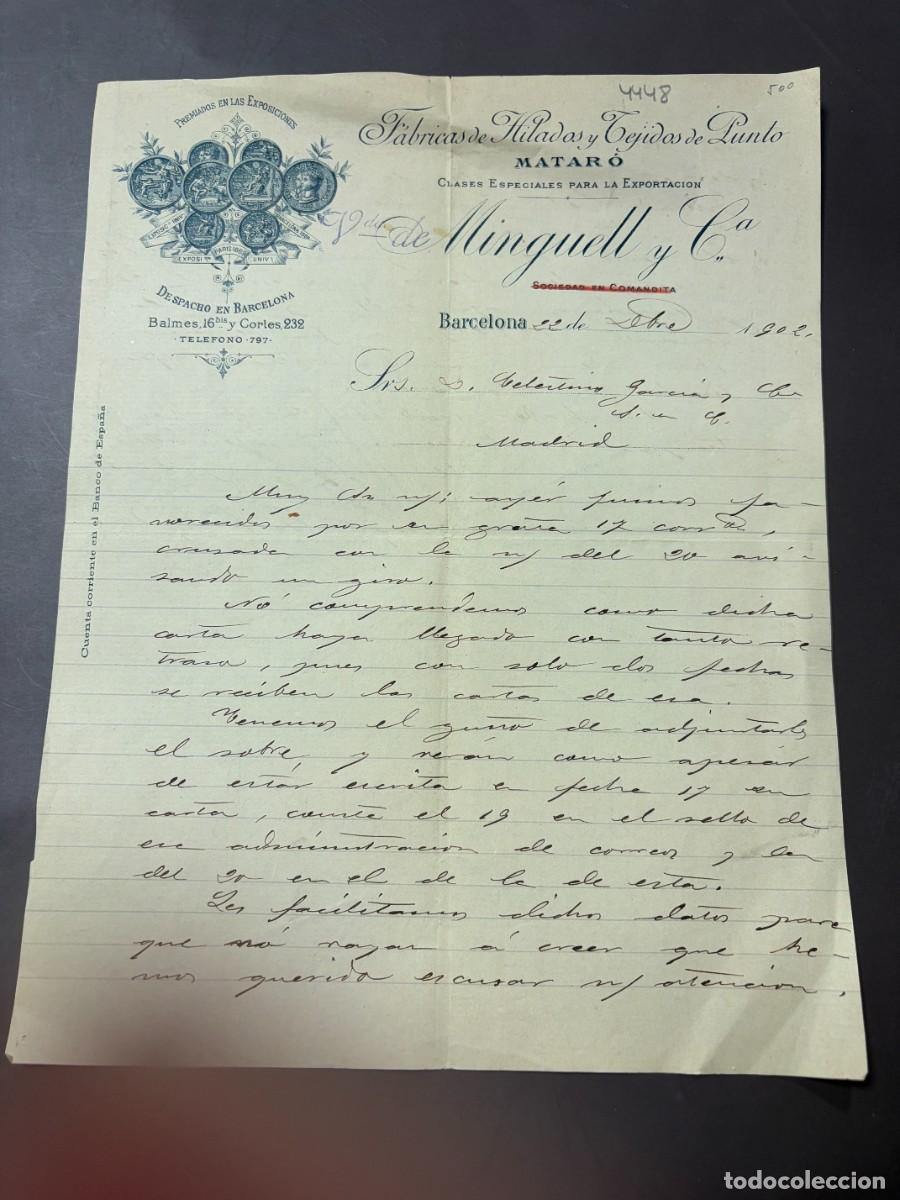 4448
500
PREMIADOS EN LAS EXPOSICIONES
Fábricas de Hilados y Tejidos de Punto
MATARÓ
CLASES ESPECIALES PARA LA EXPORTACION
Vda de Minguell y Cª
SOCIEDAD EN COMANDITA
DESPACHO EN BARCELONA
Balmes, 16 bis y Cortes, 232
TELEFONO 797
Barcelona 22 de Dbre 1902.
Srs. D. Celestino García y Cia
S. en C.
Madrid
Cuenta corriente en el Banco de España
Muy Srs n/: ayér fuimos fa-
vorecidos por su grata 17 corrte,
crusada con la n/ del 20 avi-
sando un giro.
Nó comprendemos como dicha
carta haya llegado con tanto re-
traso, pues con solo dos fechas
se reciben las cartas de esa.
Tenemos el gusto de adjuntarles
el sobre, y verán como apesár
de estár escrita en fecha 17 su
carta, consta el 19 en el sello de
esa administración de correos y la
del 20 en el de la de esta.
Les facilitamos dichos datos para
que nó vayan á creer que he-
mos querido escusar n/ atencion.
todocoleccion